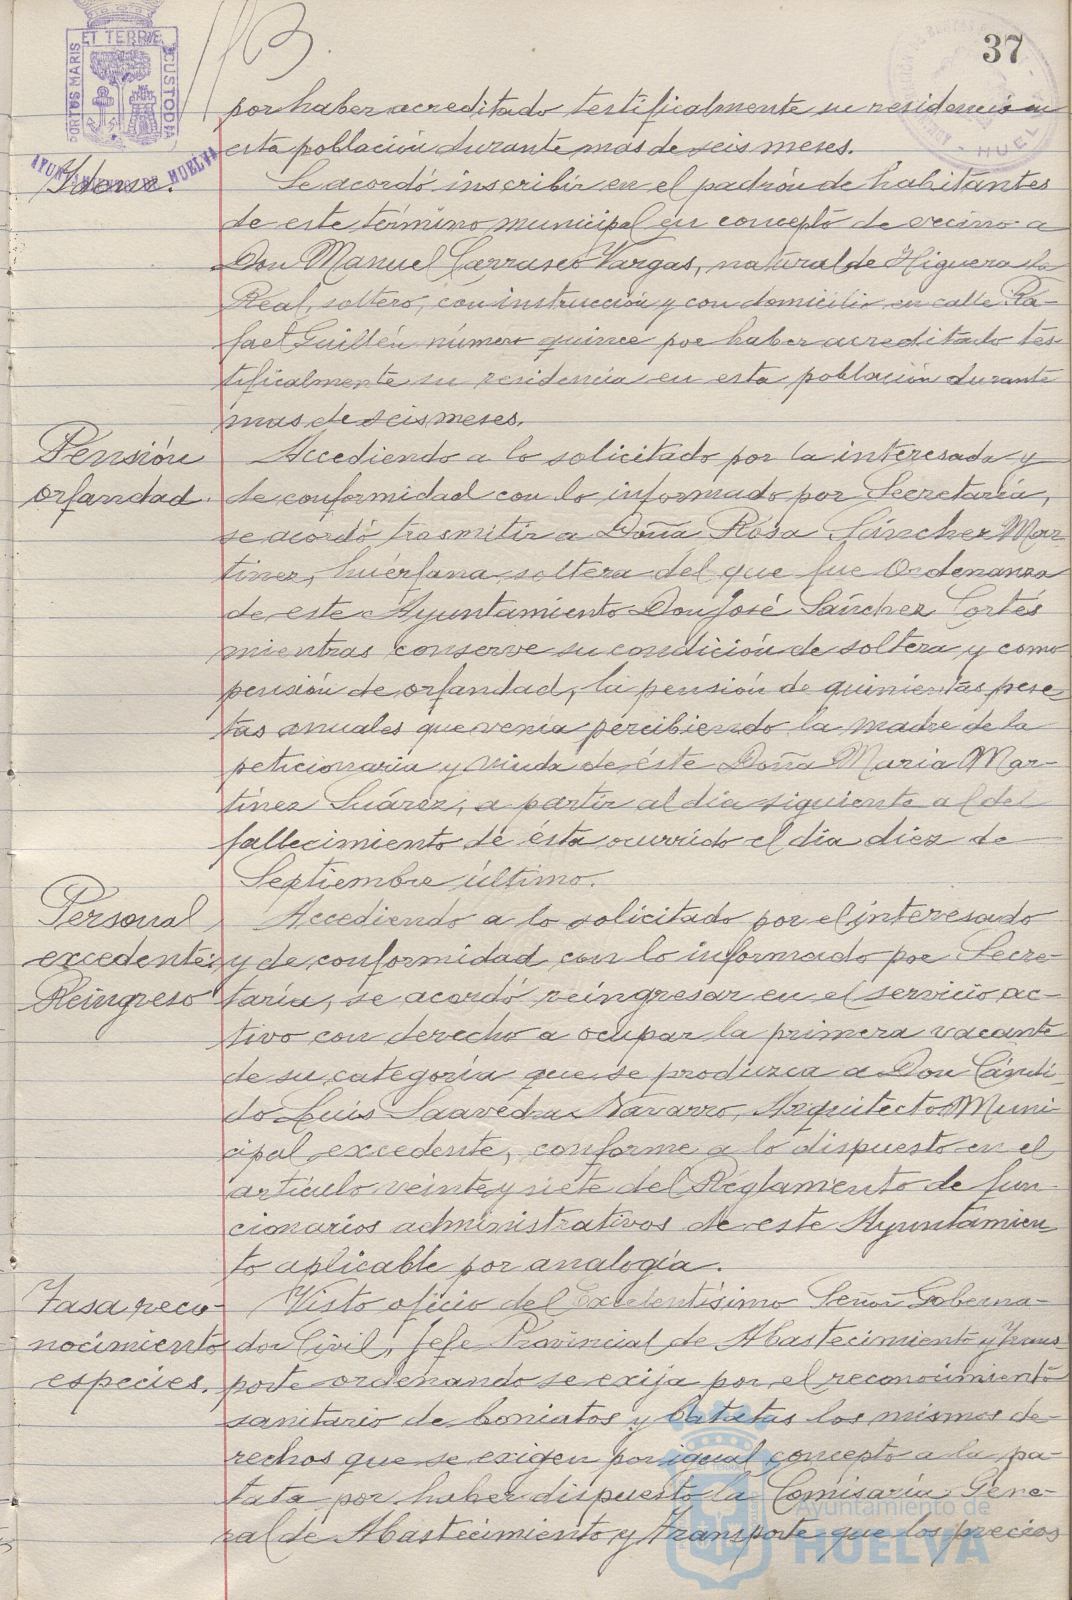 37
ET TERRE
PORTUS MARIS
CUSTODIA
AYUNTAMIENTO DE HUELVA
por haber acreditado testificalmente su residencia en
esta población durante mas de seis meses.
Ydem.
Se acordó inscribir en el padrón de habitantes
de este término municipal en concepto de vecino a
Don Manuel Carrasco Vargas, natural de Higuera la
Real, soltero, con instrucción y con domicilio en calle Ra-
fael Guillén número quince por haber acreditado tes-
tificalmente su residencia en esta población durante
mas de seis meses.
Pensión
orfandad.
Accediendo a lo solicitado por la interesada y
de conformidad con lo informado por Secretaría,
se acordó trasmitir a Doña Rosa Sánchez Mar-
tinez, huérfana soltera del que fue Ordenanza
de este Ayuntamiento Don José Sánchez Cortés
mientras conserve su condición de soltera y como
pensión de orfandad, la pensión de quinientas pese-
tas anuales que venia percibiendo la madre de la
peticionaria y viuda de éste Doña Maria Mar-
tínez Suárez, a partir al dia siguiente al del
fallecimiento de ésta ocurrido el dia diez de
Septiembre último.
Personal
excedente:
Reingreso
Accediendo a lo solicitado por el interesado
y de conformidad con lo informado por Secre-
taría, se acordó reingresar en el servicio ac-
tivo con derecho a ocupar la primera vacante
de su categoría que se produzca a Don Cándi-
do Luis Saavedra Navarro, Arquitecto Muni-
cipal excedente, conforme a lo dispuesto en el
artículo veinte y siete del Reglamento de fun-
cionarios administrativos de este Ayuntamien-
to aplicable por analogía.
Tasa reco-
nocimiento
especies.
Visto oficio del Excelentísimo Señor Goberna-
dor Civil, Jefe Provincial de Abastecimiento y Trans-
porte ordenando se exija por el reconocimiento
sanitario de boniatos y batatas los mismos de-
rechos que se exigen por igual concepto a la pa-
tata por haber dispuesto la Comisaría Gene-
ral de Abastecimiento y Transporte que los precios
Ayuntamiento de
HUELVA